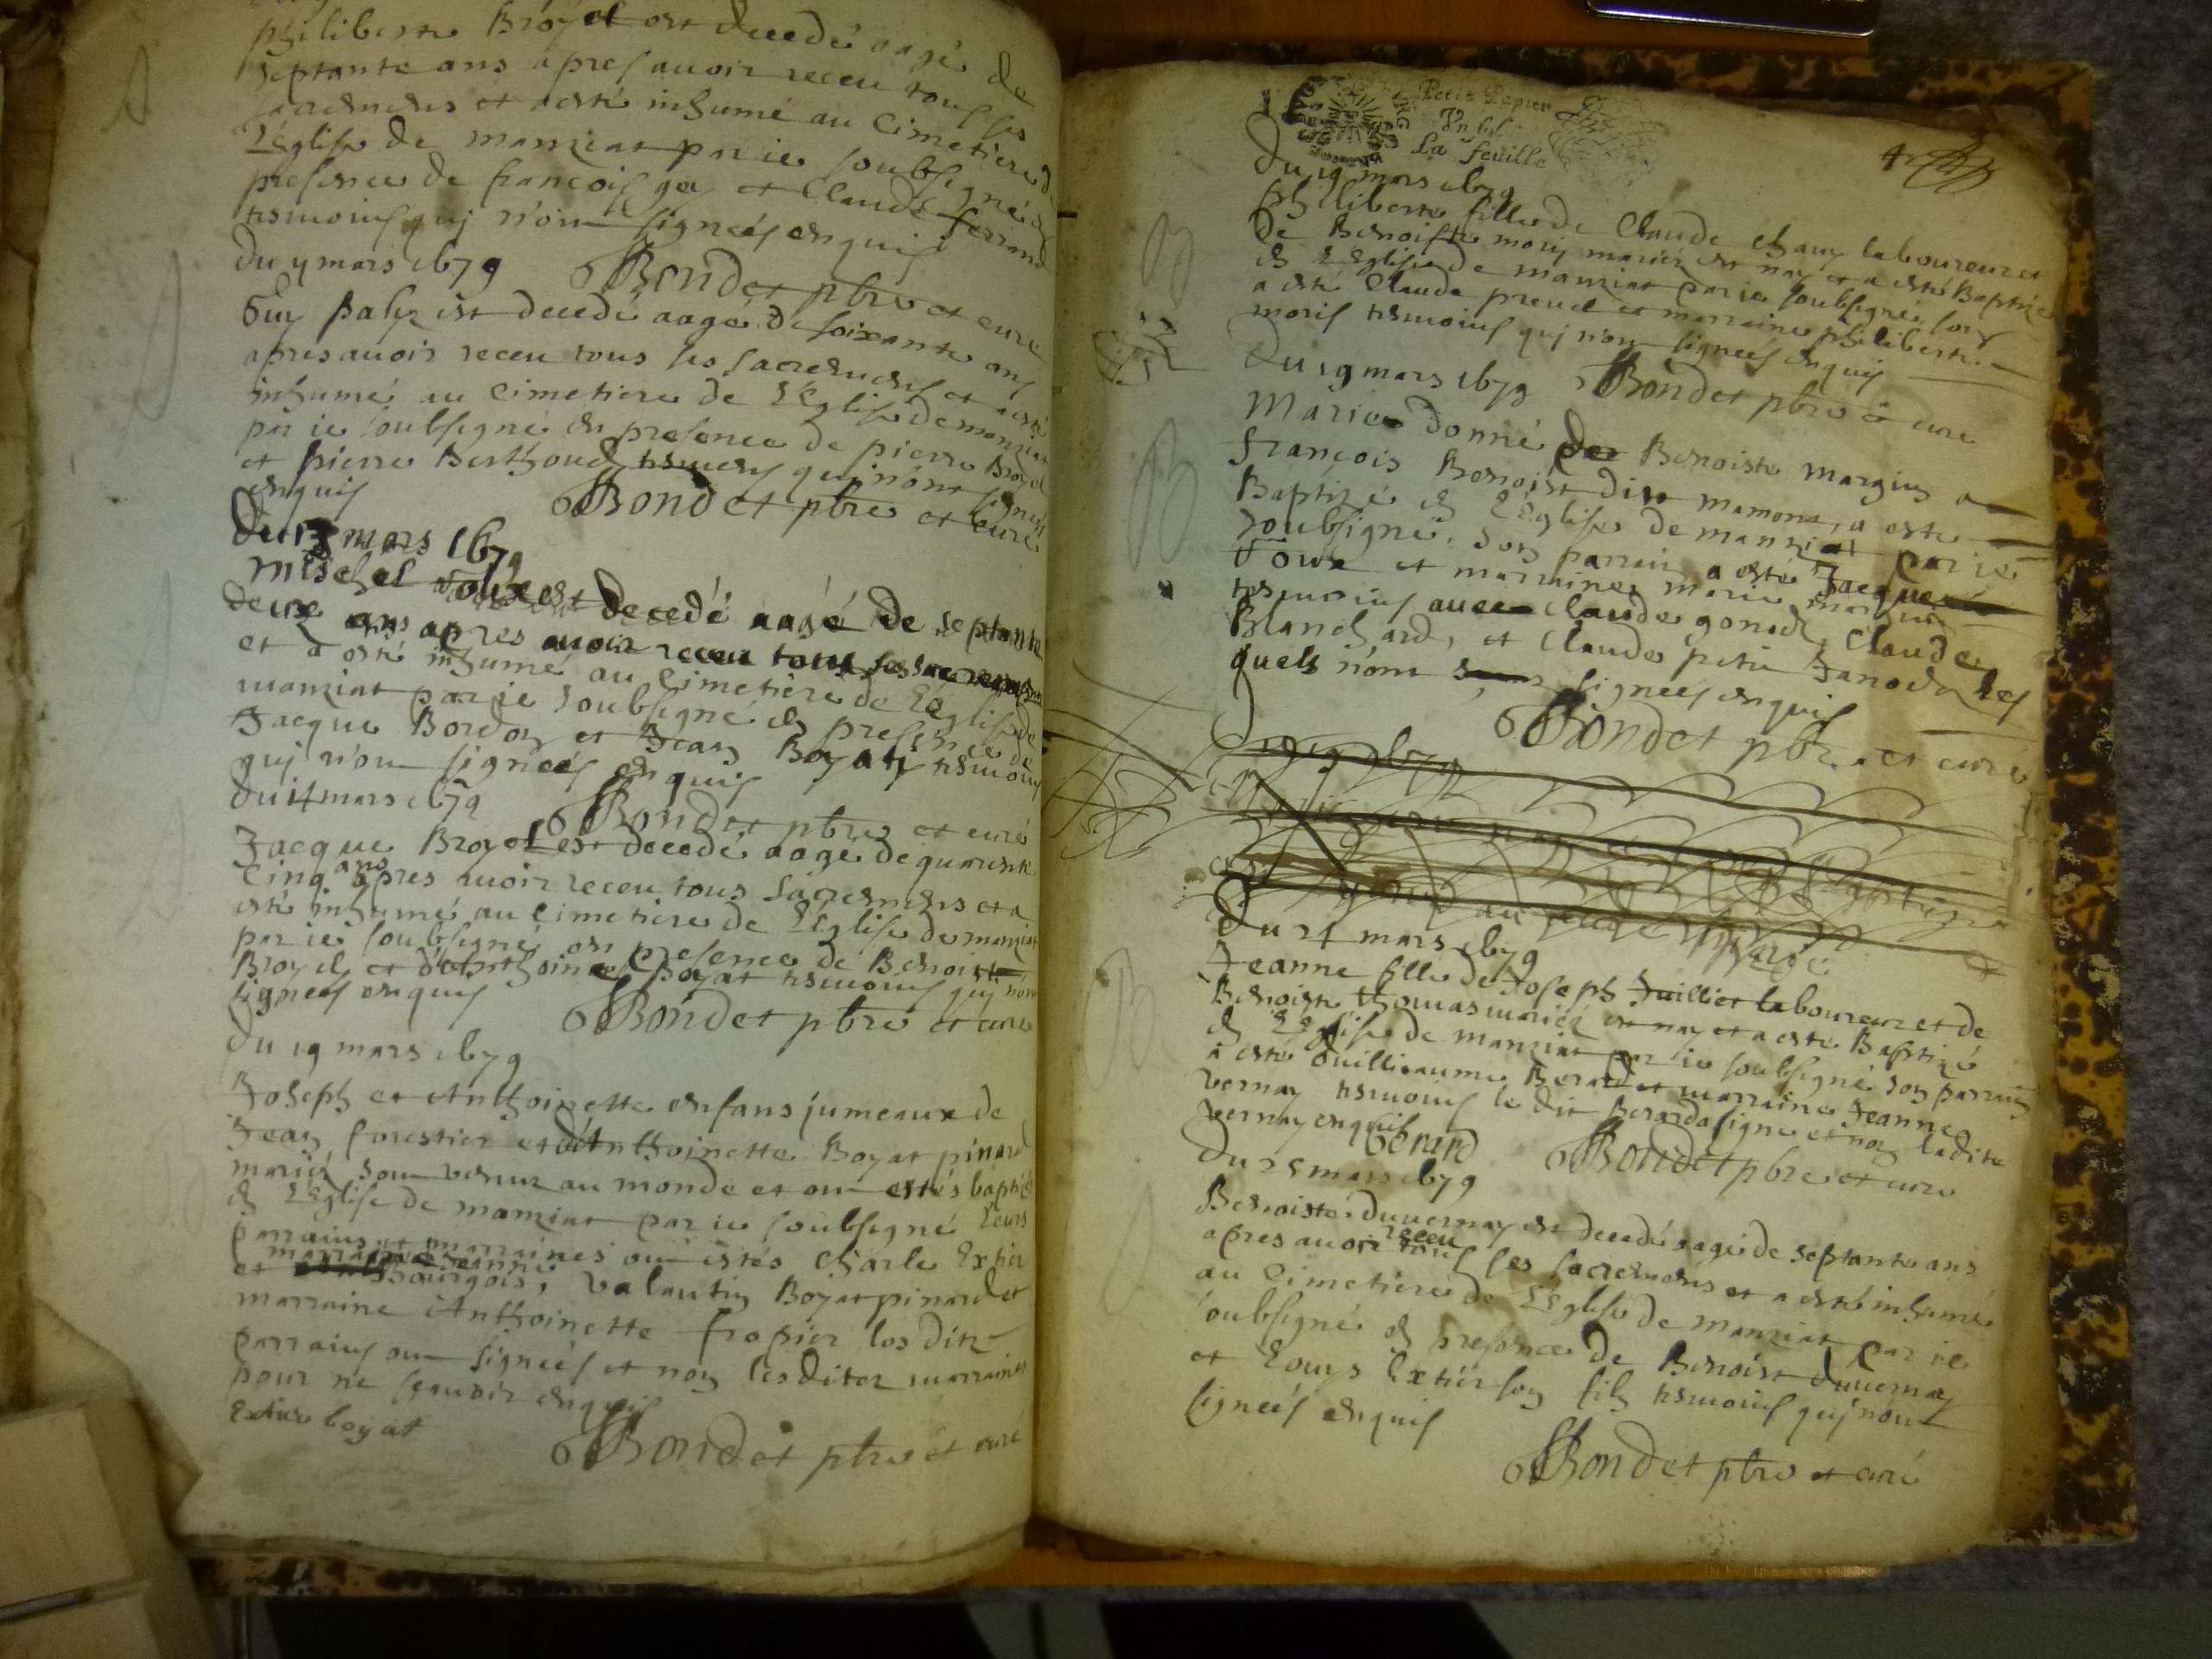 philiberte Broyel est decedé aagé de
septante ans apres avoir receu tous les
sacremens et a esté inhumé au cimetiere d
L'Eglise de manziat par ie soubsigné en
presence de françois gey et Claude ferrand
tesmoins quj n'ont signeés enquis
Bondet pbre et curé
du 9 mars 1679
Guy est decedé aagé de soixante ans
apres avoir receu tous les sacremens et a esté
inhumé au cimetiere de L'Eglise de manziat
par ie soubsigné en presence de pierre Broyel
et pierre Berthoud tesmoins quj n'ont signeés
enquis
Bondet pbre et curé
du 13 mars 1679
michel est decedé aagé de septante
deux ans apres avoir receu tous les sacremens
et a esté inhumé au cimetiere de L'Eglise de
manziat par ie soubsigné en presence de
Jacque Bordon et Jean Boyat tesmoins
quj n'ont signeés enquis
Bondet pbre et curé
du 14 mars 1679
Jacque Broyel est decedé aagé de quarente
cinq ans apres avoir receu tous sacremens et a
esté inhumé au cimetiere de L'Eglise de manziat
par ie soubsigné en presence de Benoist
Broyel et d'Anthoine Boyat tesmoins quj n'ont
signeés enquis
Bondet pbre et curé
du 19 mars 1679
Joseph et Anthoinette enfans jumeaux de
Jean forestier et d'Anthoinette Boyat pinard
mariéz sont venuz au monde et ont estés baptisé
en L'Eglise de manziat par ie soubsigné Leurs
parrains et marraines ont estés charle Extier
et marraine Jeanne bourgois, valantin Boyat pinard et
marraine Anthoinette fropier les ditz
parrains ont signeés et non lesdites marraines
pour ne sçavoir enquis
Extier boyat
Bondet pbre et curé
Petit Papier
Un sol
La feuille
du 19 mars 1679
philiberte fille de Claude chany laboureur et
de Benoiste morij mariéz est nay et a esté Baptizé
en L'Eglise de manziat par ie soubsigné, son
a esté Claude preud et marraine philiberte
moris tesmoins quj n'ont signeés enquis
Bondet pbre et curé
du 19 mars 1679
Marie donné par Benoiste margin a
françois Benoist dist mamont, a esté
Baptizé en L'Eglise de manziat par ie
soubsigné, son parrain a esté Jacque
et marraine marie margin
tesmoins avec Claude gonod, Claude
Blanchard, et Claude petit Janod les
quels n'ont signeés enquis
Bondet pbre et curé
du 24 mars 1679
Jeanne fille de Joseph Juillier laboureur et de
Benoiste thomas mariéz est nay et a esté Baptizé
en L'Eglise de manziat par ie soubsigné son parrain
a esté Guillieaume Berard et marraine Jeanne
vernay tesmoins le dit Berard a signé et non ladite
vernay enquis
Berard
Bondet pbre et curé
du 25 mars 1679
Benoiste duvernay est decedé aagé de septante ans
apres avoir receu tous les sacremens et a esté inhumé
au cimetiere de L'Eglise de manziat par ie
soubsigné en presence de Benoist duvernay
et Louys Extier son filz tesmoins quj n'ont
signeés enquis
Bondet pbre et curé